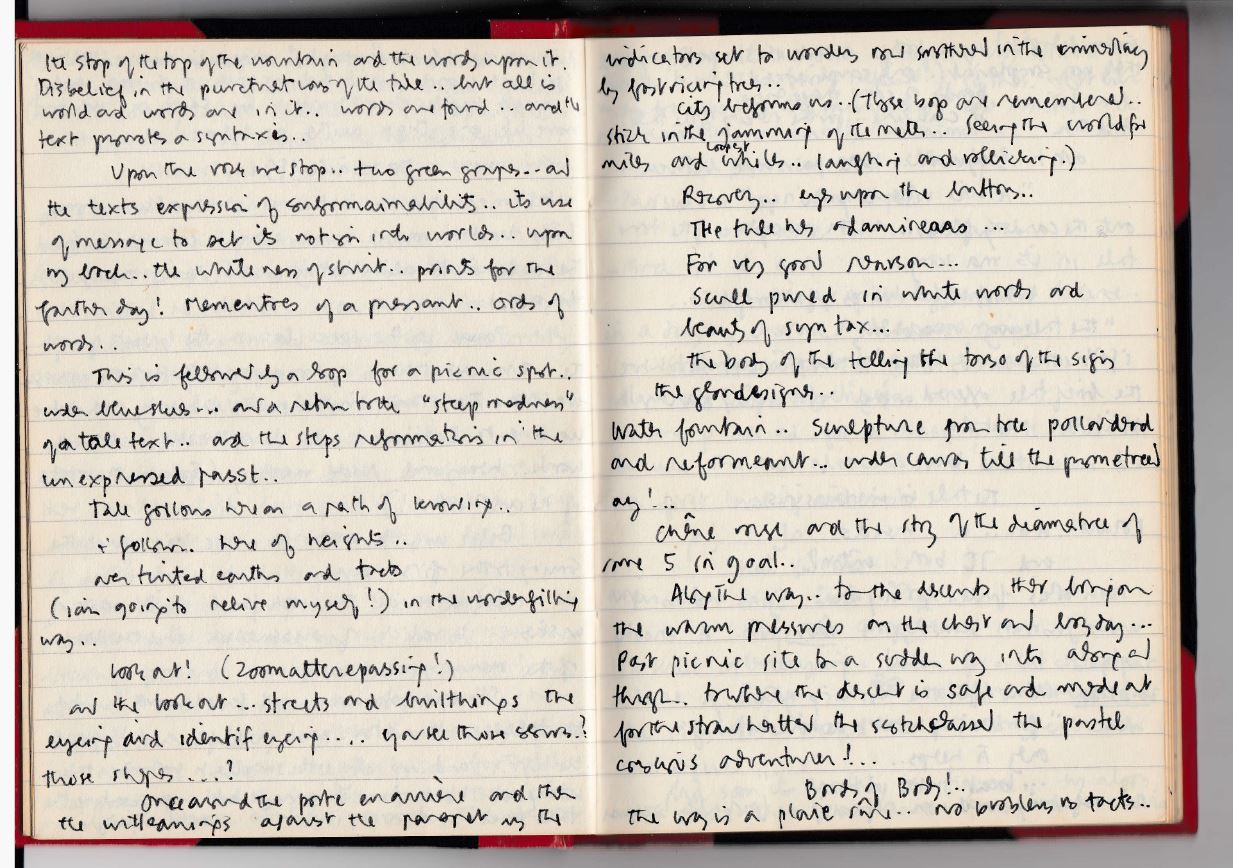 the stop of the top of the mountain and the words upon it.
Disbelief in the punctuations of the tale .. but all is
world and words are in it.. words are found .. and the
text promotes a syntaxis..
Upon the rock we stop.. two green grapes.. and
the texts expression of .. its use
of message to set its in worlds.. upon
my back.. the whiteness of shirt.. prints for the
farther day! Mementoes of a pressant.. ords of
words..
This is followed by a loop for a picnic spot..
under blueskies... and a return to the "steep madness"
of a tale text.. and the steps reformations in the
unexpressed passt...
Tale follows here on a path of knowing..
+ follow. here of heights..
over tinted earths and tacts
(i am going to relive myself!) in the wonderfilling
way..
look at! (Zoomattterepassing!)
and the look out... streets and builthings the
eyeing and identif eyeing.... you see those ?
those shapes ...?
Once around the porte en arrière and then
the against the parapet in the
indicators set to wonder now smothered in the
by fast ricing trees...
city beforms us.. (Those bop are remembered..
stick in the jamming of the metes.. Seeing the world for
miles and whiles.. laughing and rollicking.)
Recovery.. eyes upon the button..
The tale hes ...
For very good rearson...
Scull pured in white words and
beauty of syn tax...
the body of the telling the torso of the signs
the ...
Water fountain.. Sculpture from tree pollarded
and reformeant... under canvas till the prometred
ay!...
Chêne rouge and the story of the diametree of
some 5 in goal..
Along the way.. to the descents
the warm pressures on the chest and day...
Past picnic site to a sudden way into along and
though.. to where the descent is safe and made at
for the straw hatted the the pastel
conscious adventurer!...
Bords of Bords!..
the way is a plaie .. no problems tacts..